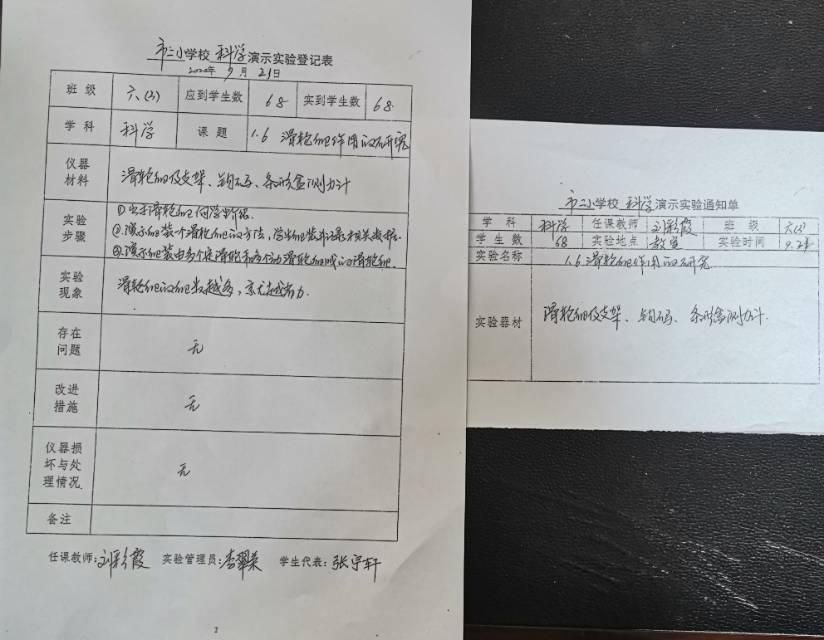 市二小学校 科学 演示实验登记表
2020年9月21日
班级 六(3) 应到学生数 68 实到学生数 68
学科 科学 课题 1.6 滑轮组作用的研究
仪器材料 滑轮组及支架、钩码、条形盒测力计
实验步骤 ①出示滑轮组向学生介绍.
②演示组装一个滑轮组的方法,学生组装并记录相关数据.
③演示组装由多个定滑轮和多个动滑轮组成的滑轮组.
实验现象 滑轮组的组数越多,就越省力.
存在问题 无
改进措施 无
仪器损坏与处理情况 无
备注
任课教师:刘彩霞 实验管理员:李翠英 学生代表:张宇轩
2
市二小学校 科学 演示实验通知单
学科 科学 任课教师 刘彩霞 班级 六(3)
学生数 68 实验地点 教室 实验时间 9.21
实验名称 1.6 滑轮组作用的研究
实验器材 滑轮组及支架、钩码、条形盒测力计.